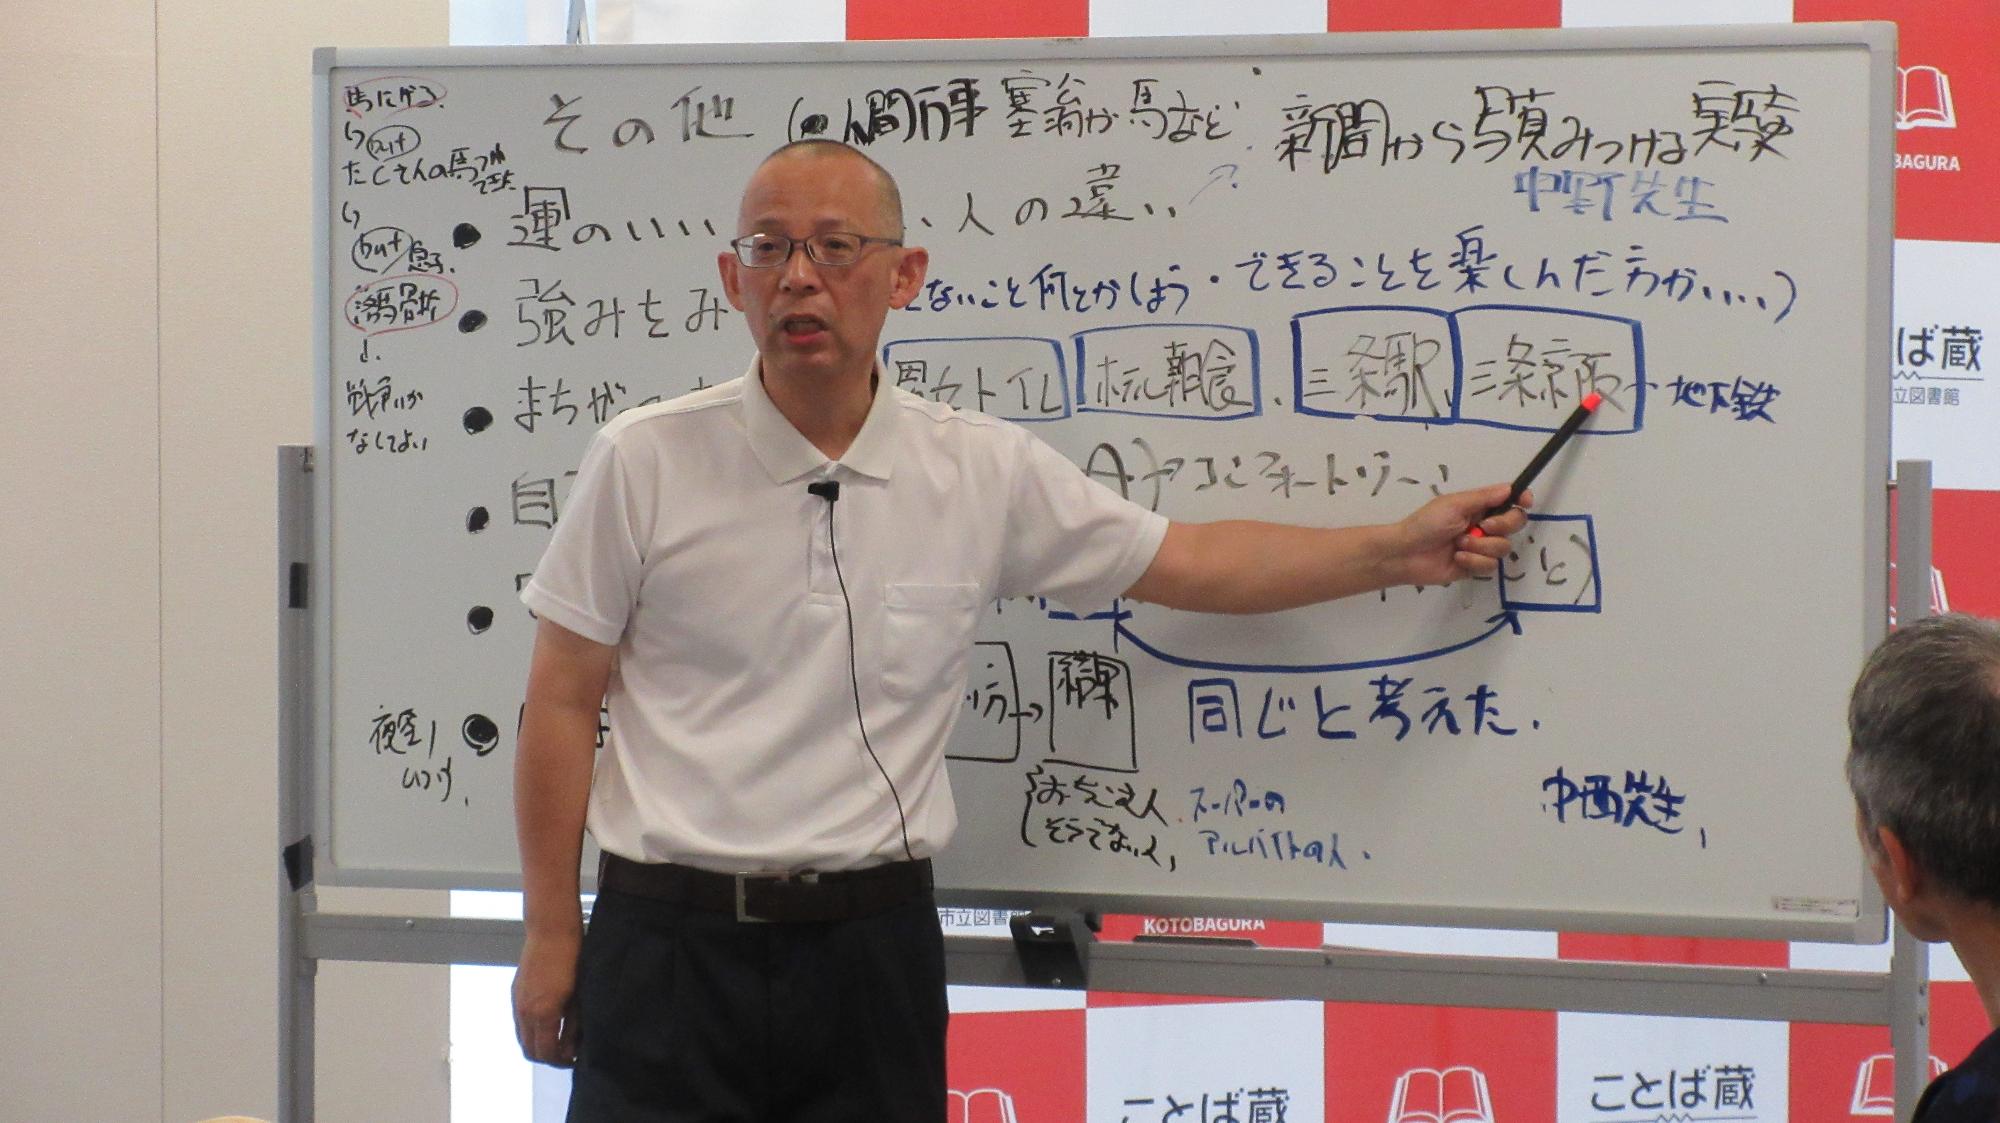 馬にげる.
but
たくさんの馬つれ
てきた
but 息子.
落馬骨折
戦争いか
なしてよい
その他 (人間万事 塞翁が馬など
新聞から写真みつける実験
中野先生
運のいい
人の違い
?
強みをみ
ないこと何とかしよう・できることを楽しんだ方が....)
まちがっ
男女トイレ
ホテル朝食
三条駅
三条京阪
地下鉄
自
コンフォートゾーン
ごと)
結果
同じと考えた.
夜空
いつ
おちこむ人
そうでない人
スーパーの
アルバイトの人.
中西先生
BAGURA
ば蔵
立図書館
市立図書館
KOTOBAGURA
ことば蔵
ことば蔵